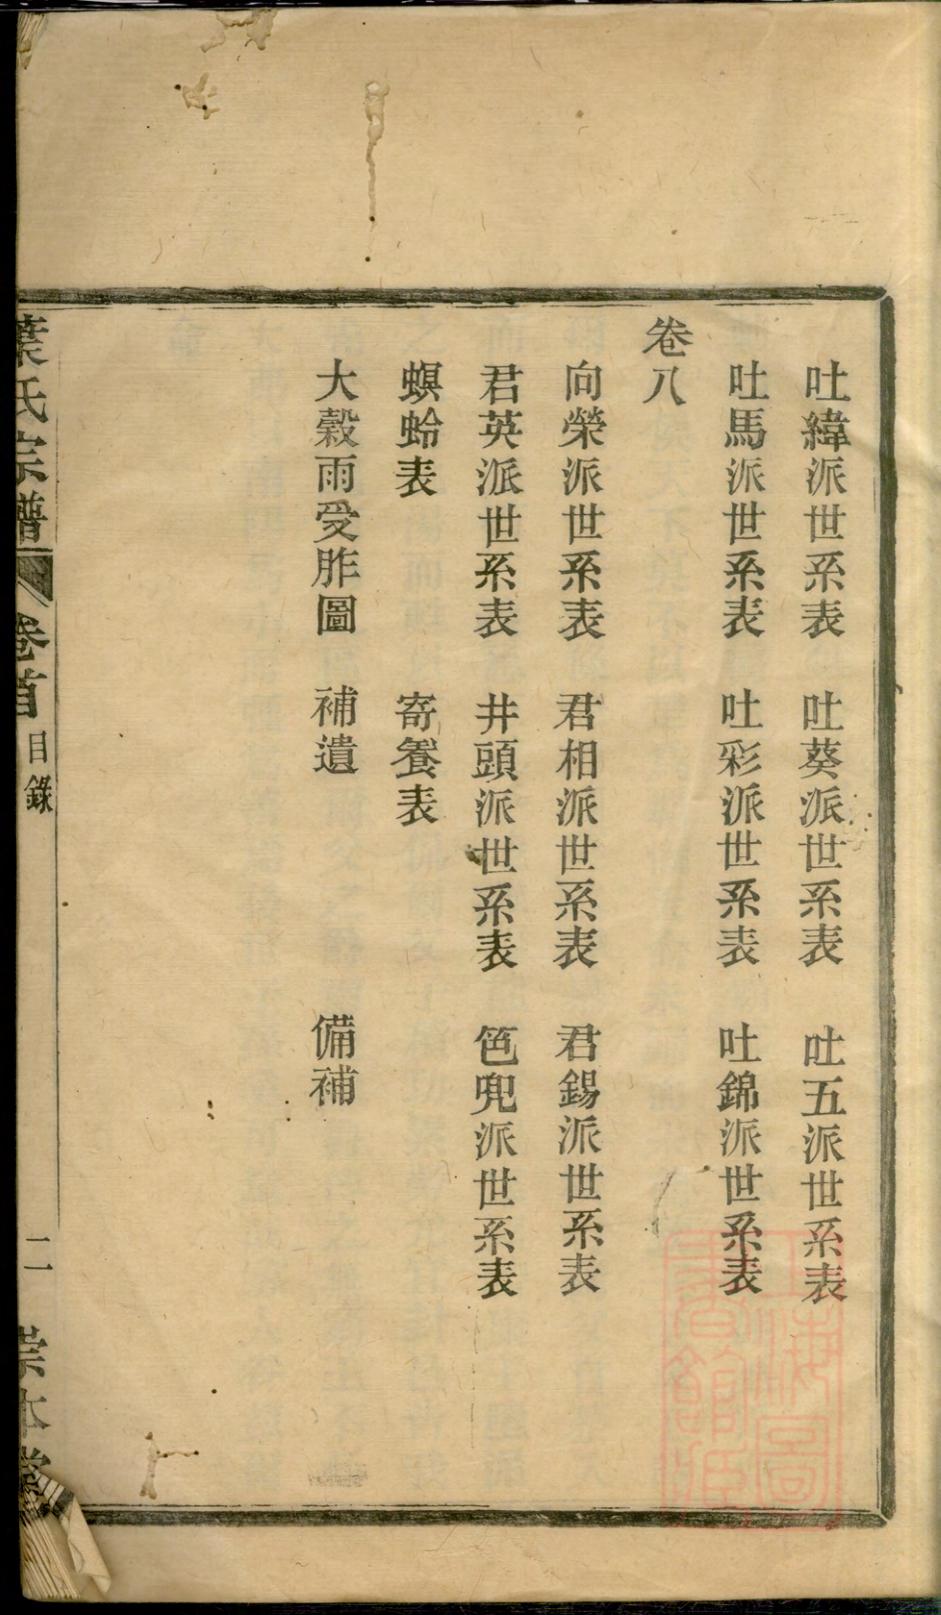 吐緯派世系表　吐葵派世系表　吐五派世系表
吐馬派世系表　吐彩派世系表　吐錦派世系表
卷八
向榮派世系表　君相派世系表　君錫派世系表
君英派世系表　井頭派世系表　笆兜派世系表
螟蛉表　寄養表
大穀雨受胙圖　補遺　備補
葉氏宗譜　卷首　目錄　二　崇本堂